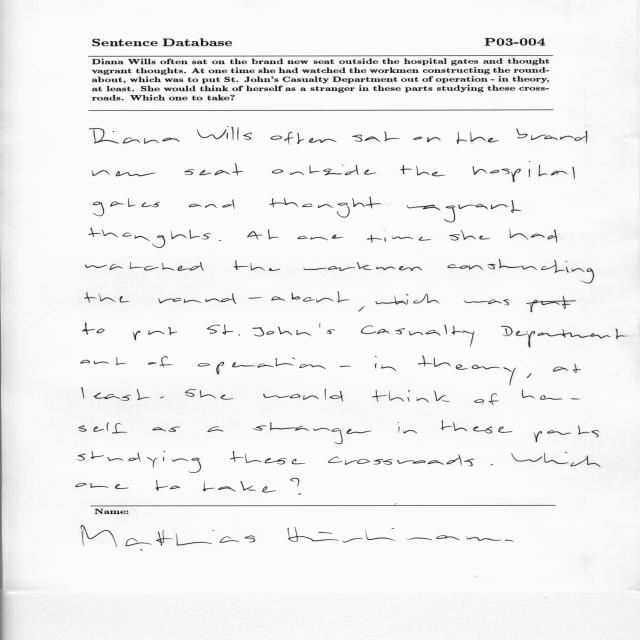 Sentence Database P03-004
Diana Wills often sat on the brand new seat outside the hospital gates and thought
vagrant thoughts. At one time she had watched the workmen constructing the round-
about, which was to put St. John's Casualty Department out of operation - in theory,
at least. She would think of herself as a stranger in these parts studying these cross-
roads. Which one to take?
Diana Wills often sat on the brand
new seat outside the hospital
gates and thought vagrant
thoughts. At one time she had
watched the workmen constructing
the round-about, which was put
to put St. John's Casualty Department
out of operation - in theory, at
least. She would think of her-
self as a stranger in these parts
studying these crossroads. Which
one to take?
Name:
Mathias